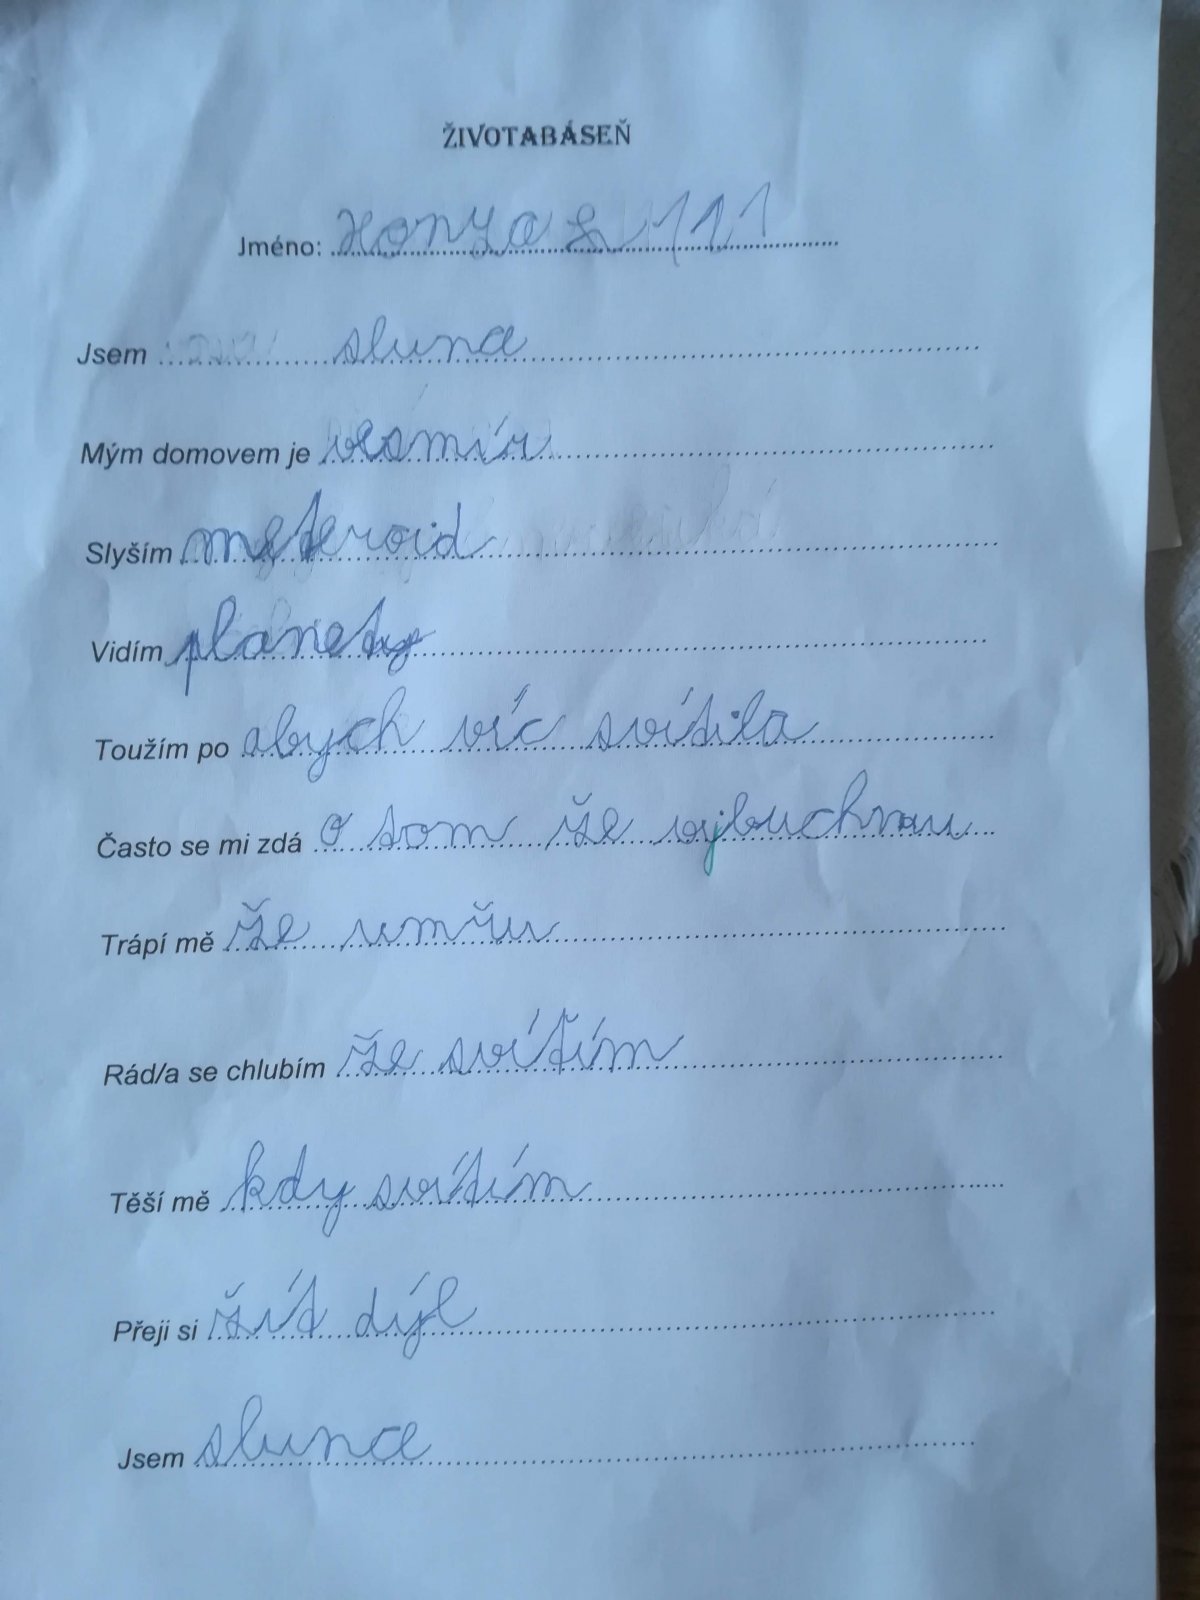 ŽIVOTABÁSEŇ
Jméno: Honza L 111
Jsem slunce
Mým domovem je vesmír
Slyším meteroid
Vidím planety
Toužím po abych víc svítila
Často se mi zdá o tom že vybuchnu
Trápí mě že umřu
Rád/a se chlubím že svítím
Těší mě kdy svítím
Přeji si žít dýl
Jsem slunce